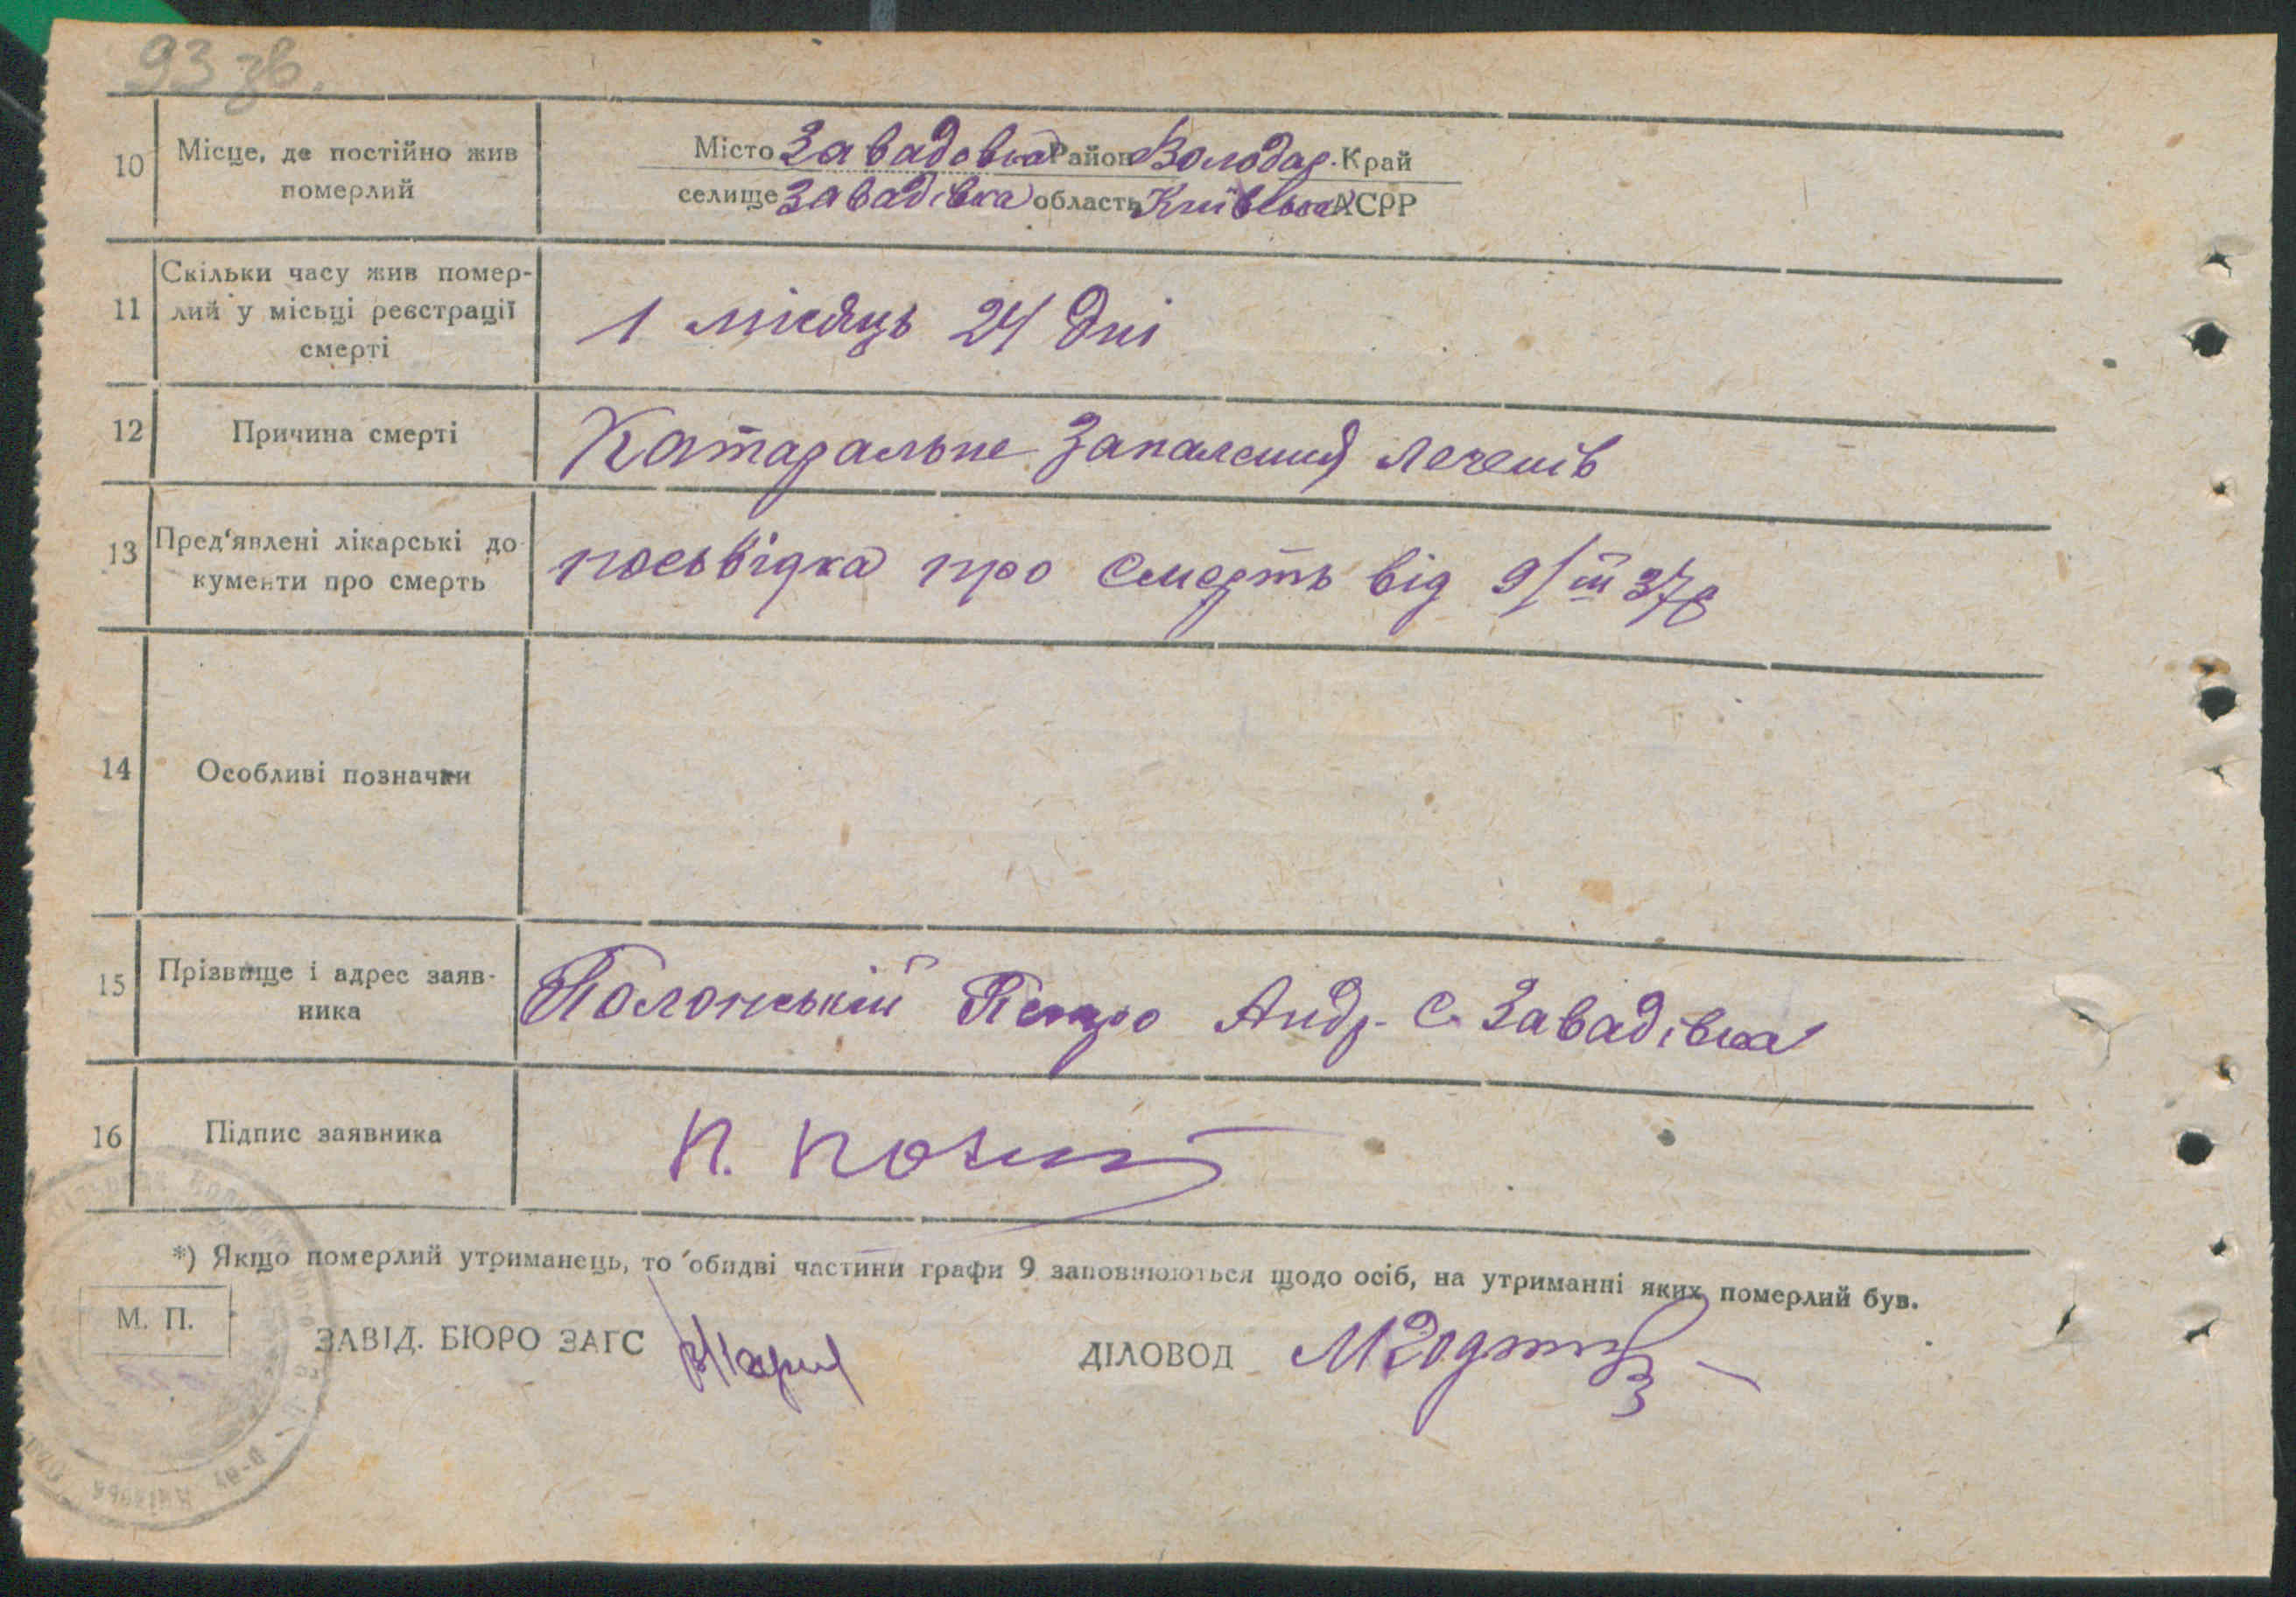 93 зв.
10 Місце, де постійно жив померлий
Місто Завадовка Район Володар. Край
селище Завадівка область Київська АСРР
11 Скільки часу жив помер-
лий у місьці реєстрації
смерті
1 місяць 24 дні
12 Причина смерті
Катаральне запалення легенів
13 Пред'явлені лікарські до
кументи про смерть
посьвідка про смерть від 9/III 37р
14 Особливі позначки
15 Прізвище і адрес заяв-
ника
Полонській Петро Андр. с. Завадівка
16 Підпис заявника
П.
*) Якщо померлий утриманець, то обидві частини графи 9 заповнюються щодо осіб, на утриманні яких померлий був.
М. П.
ЗАВІД. БЮРО ЗАГС
ДІЛОВОД